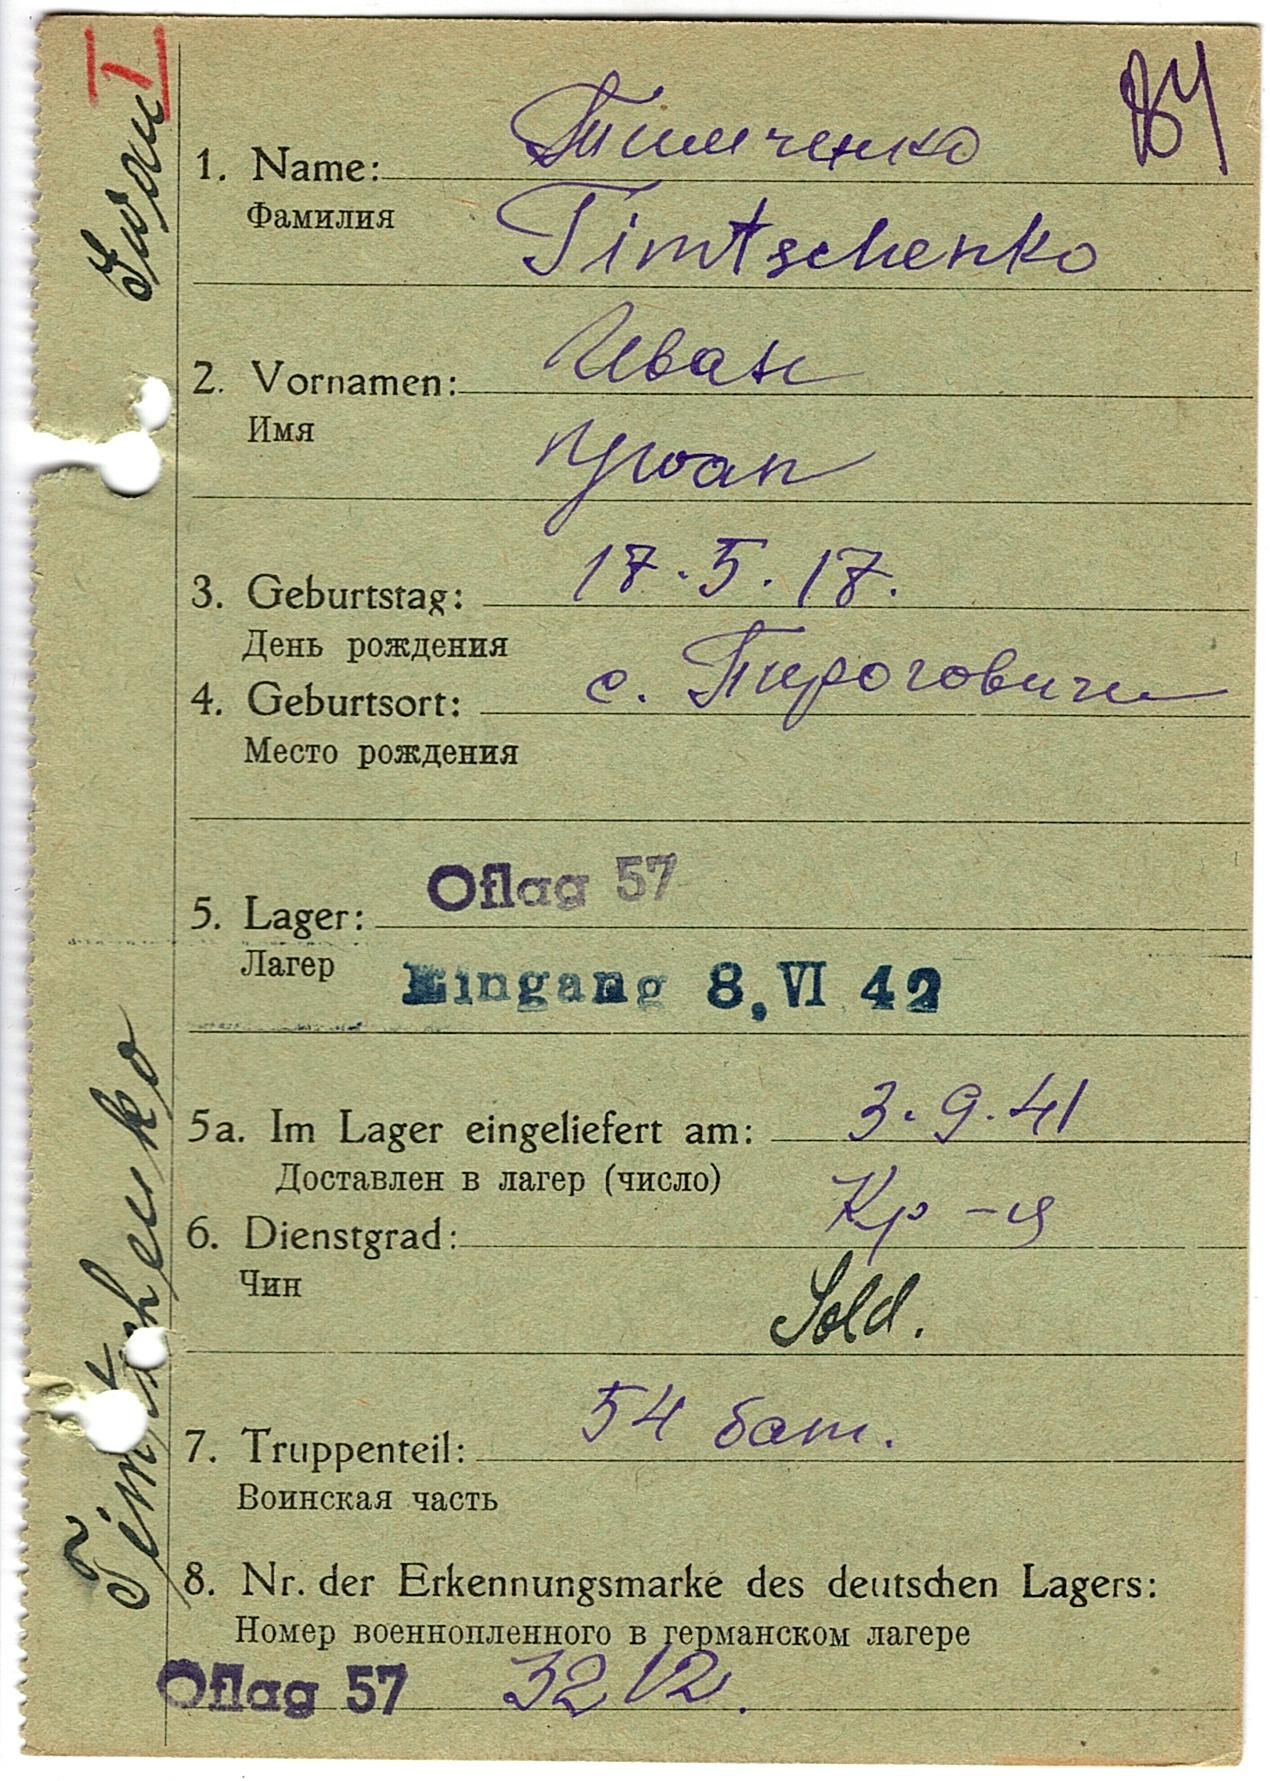 I
Iwan
Timtschenko
84
1. Name: Тимченко
Фамилия
Timtschenko
2. Vornamen: Иван
Имя
Ywan
3. Geburtstag: 17.5.17.
День рождения
4. Geburtsort: с. Пироговичи
Место рождения
5. Lager: Oflag 57
Лагер
Eingang 8. VI 42
5a. Im Lager eingeliefert am: 3.9.41
Доставлен в лагер (число)
6. Dienstgrad: Кр-ц
Чин
Sold.
7. Truppenteil: 54 бат.
Воинская часть
8. Nr. der Erkennungsmarke des deutschen Lagers:
Номер военнопленного в германском лагере
Oflag 57 3212.